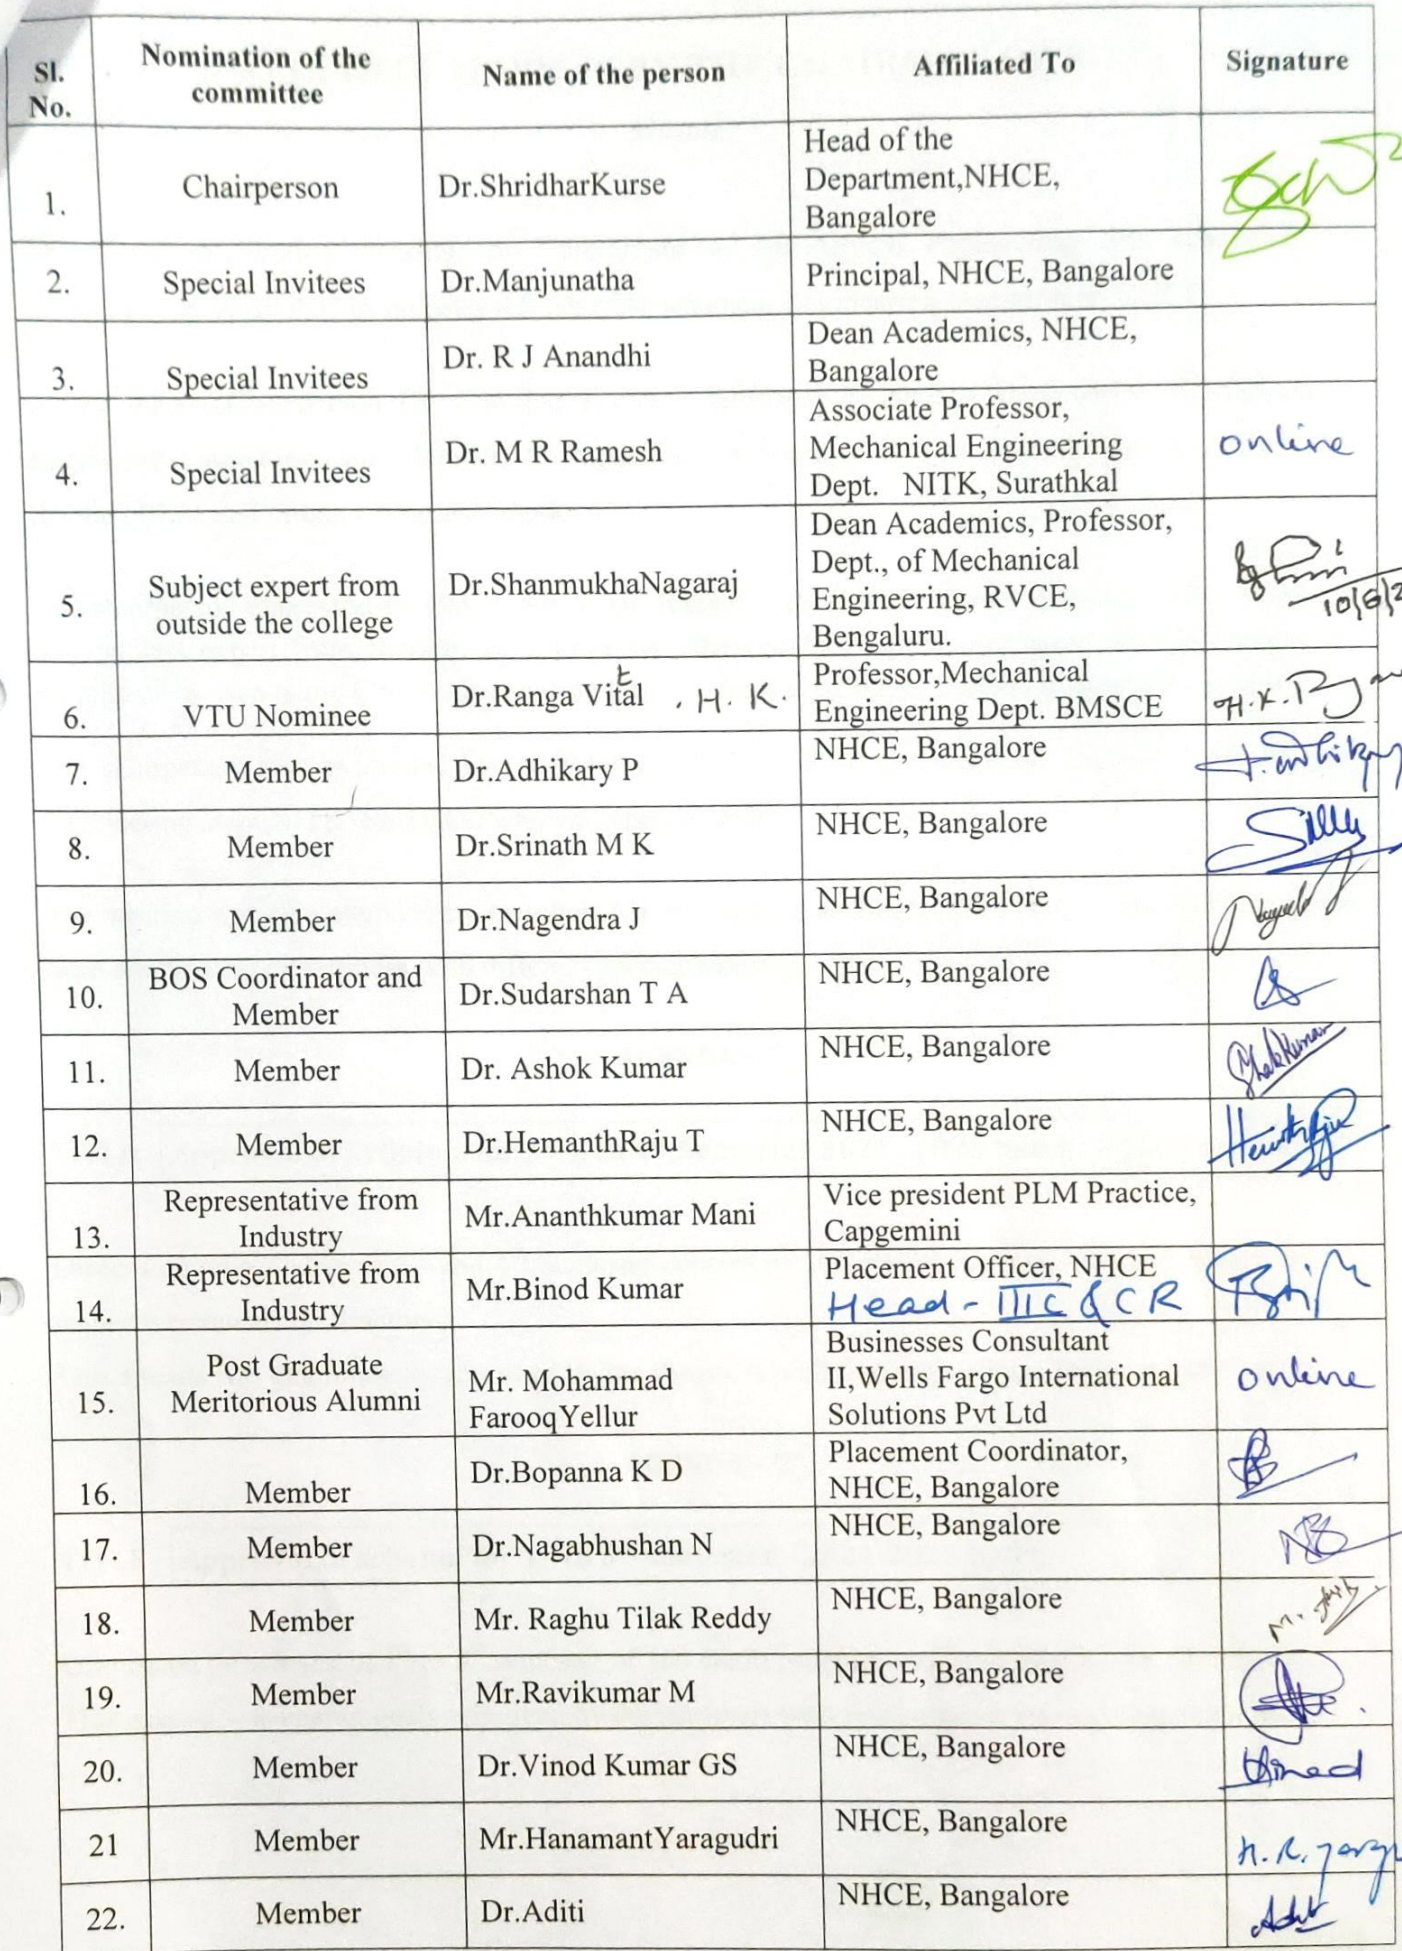 Sl. No.
Nomination of the committee
Name of the person
Affiliated To
Signature
1.
Chairperson
Dr.ShridharKurse
Head of the
Department,NHCE,
Bangalore
2.
Special Invitees
Dr.Manjunatha
Principal, NHCE, Bangalore
3.
Special Invitees
Dr. R J Anandhi
Dean Academics, NHCE,
Bangalore
4.
Special Invitees
Dr. M R Ramesh
Associate Professor,
Mechanical Engineering
Dept. NITK, Surathkal
online
5.
Subject expert from
outside the college
Dr.ShanmukhaNagaraj
Dean Academics, Professor,
Dept., of Mechanical
Engineering, RVCE,
Bengaluru.
6.
VTU Nominee
t
Dr.Ranga Vital . H. K.
Professor,Mechanical
Engineering Dept. BMSCE
H.K.
7.
Member
Dr.Adhikary P
NHCE, Bangalore
8.
Member
Dr.Srinath M K
NHCE, Bangalore
9.
Member
Dr.Nagendra J
NHCE, Bangalore
10.
BOS Coordinator and
Member
Dr.Sudarshan T A
NHCE, Bangalore
11.
Member
Dr. Ashok Kumar
NHCE, Bangalore
12.
Member
Dr.HemanthRaju T
NHCE, Bangalore
13.
Representative from
Industry
Mr.Ananthkumar Mani
Vice president PLM Practice,
Capgemini
14.
Representative from
Industry
Mr.Binod Kumar
Placement Officer, NHCE
Head - IIIC & CR
15.
Post Graduate
Meritorious Alumni
Mr. Mohammad
FarooqYellur
Businesses Consultant
II,Wells Fargo International
Solutions Pvt Ltd
online
16.
Member
Dr.Bopanna K D
Placement Coordinator,
NHCE, Bangalore
17.
Member
Dr.Nagabhushan N
NHCE, Bangalore
18.
Member
Mr. Raghu Tilak Reddy
NHCE, Bangalore
19.
Member
Mr.Ravikumar M
NHCE, Bangalore
20.
Member
Dr.Vinod Kumar GS
NHCE, Bangalore
21
Member
Mr.HanamantYaragudri
NHCE, Bangalore
22.
Member
Dr.Aditi
NHCE, Bangalore